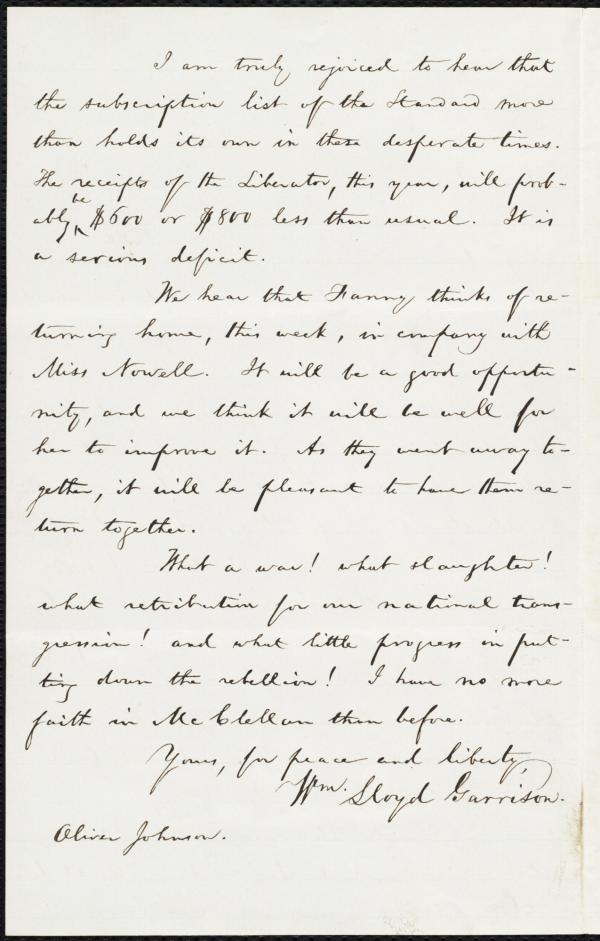 I am truly rejoiced to hear that
the subscription list of the Standard more
than holds its own in these desperate times.
The receipts of the Liberator, this year, will prob-
ably be $600 or $800 less than usual. It is
a serious deficit.
We hear that Fanny thinks of re-
turning home, this week, in company with
Miss Nowell. It will be a good opportu-
nity, and we think it will be well for
her to improve it. As they went away to-
gether, it will be pleasant to have them re-
turn together.
What a war! what slaughter!
what retribution for our national trans-
gression! and what little progress in put-
ting down the rebellion! I have no more
faith in McClellan than before.
Yours, for peace and liberty,
Wm. Lloyd Garrison.
Oliver Johnson.